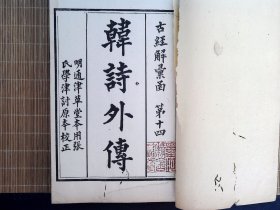 古經解彙函　第十四
韓詩外傳
明通津草堂本用張
氏學津討原本校正